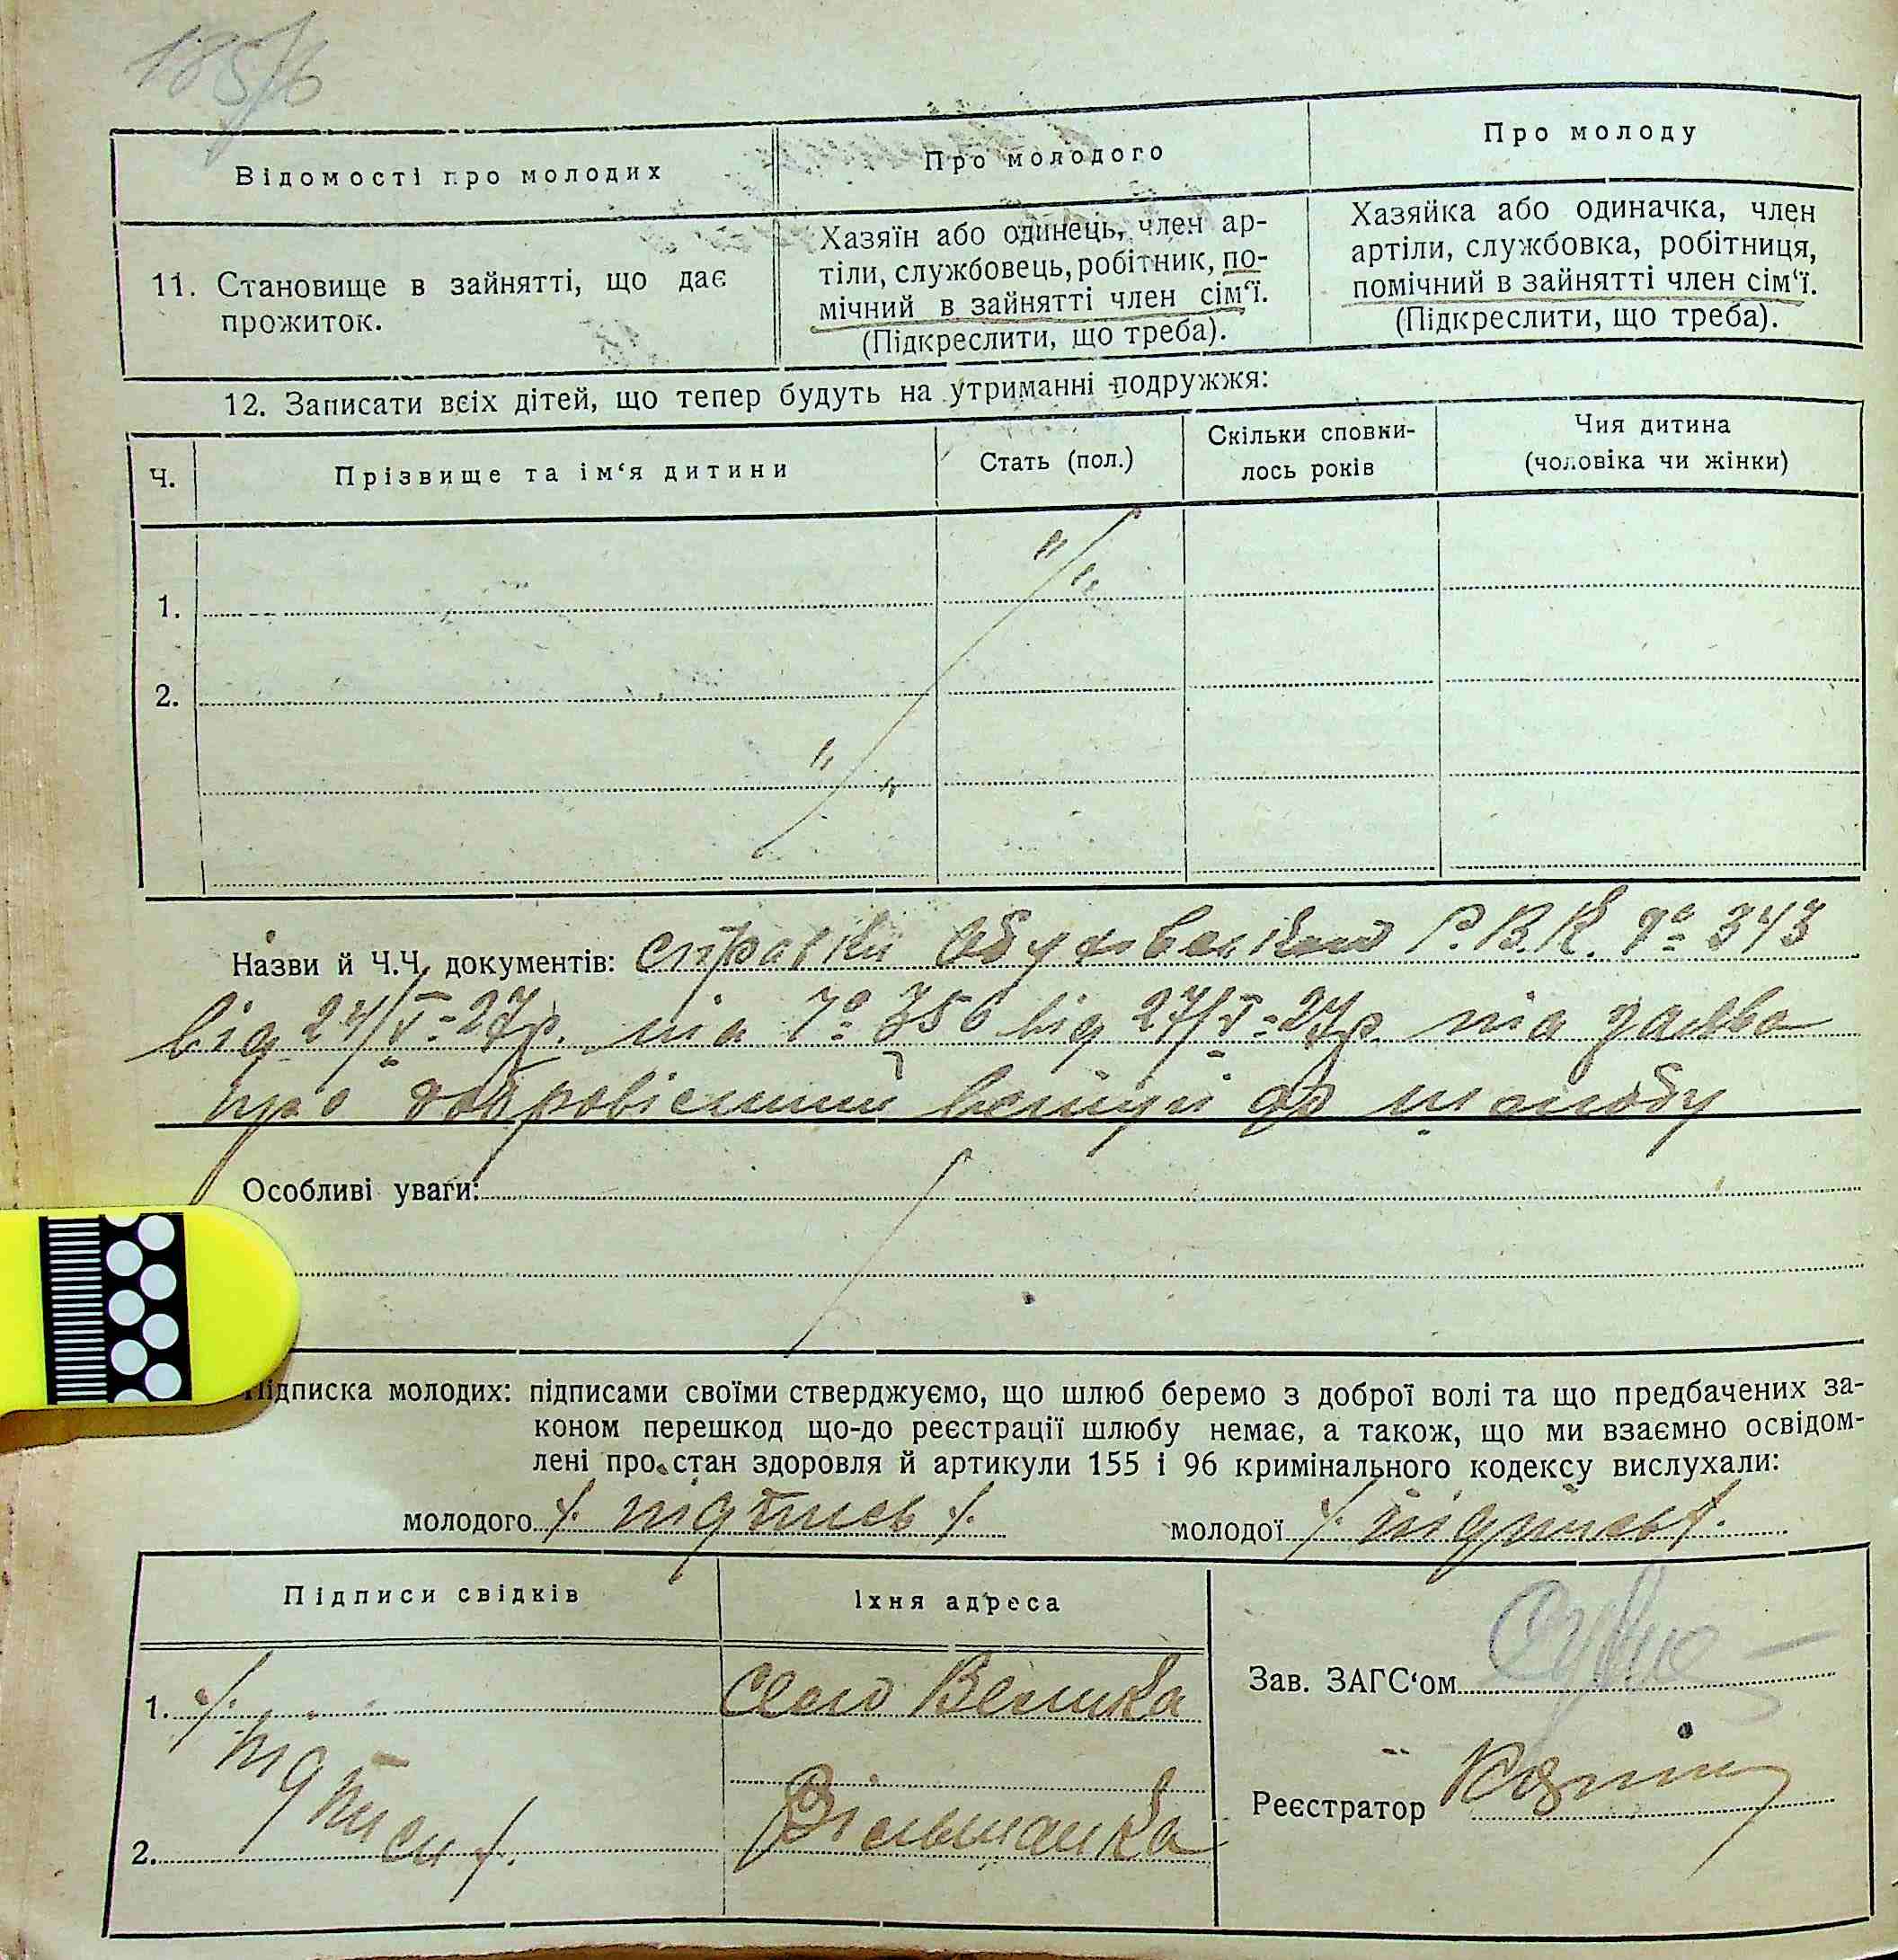 185/6
Відомості про молодих
Про молодого
Про молоду
11. Становище в зайнятті, що дає
прожиток.
Хазяїн або одинець, член ар-
тіли, службовець, робітник, по-
мічний в зайнятті член сім‘ї.
(Підкреслити, що треба).
Хазяйка або одиначка, член
артіли, службовка, робітниця,
помічний в зайнятті член сім‘ї.
(Підкреслити, що треба).
12. Записати всіх дітей, що тепер будуть на утриманні подружжя:
Ч.
Прізвище та ім‘я дитини
Стать (пол.)
Скільки сповни-
лось років
Чия дитина
(чоловіка чи жінки)
1.
2.
Назви й Ч.Ч. документів: справки Обухівської Р.В.К. № 343
від 24/V-27р. та № 356 від 27/V-27р. та заява
про вступ до шлюбу
Особливі уваги:
Підписка молодих: підписами своїми стверджуємо, що шлюб беремо з доброї волі та що предбачених за-
коном перешкод що-до реєстрації шлюбу немає, а також, що ми взаємно освідом-
лені про стан здоровля й артикули 155 і 96 кримінального кодексу вислухали:
молодого /. підпись /.
молодої /. підпись /.
Підписи свідків
Їхня адреса
1. /. підписи /.
2.
Село Велика
Вільшанка
Зав. ЗАГС‘ом
Реєстратор